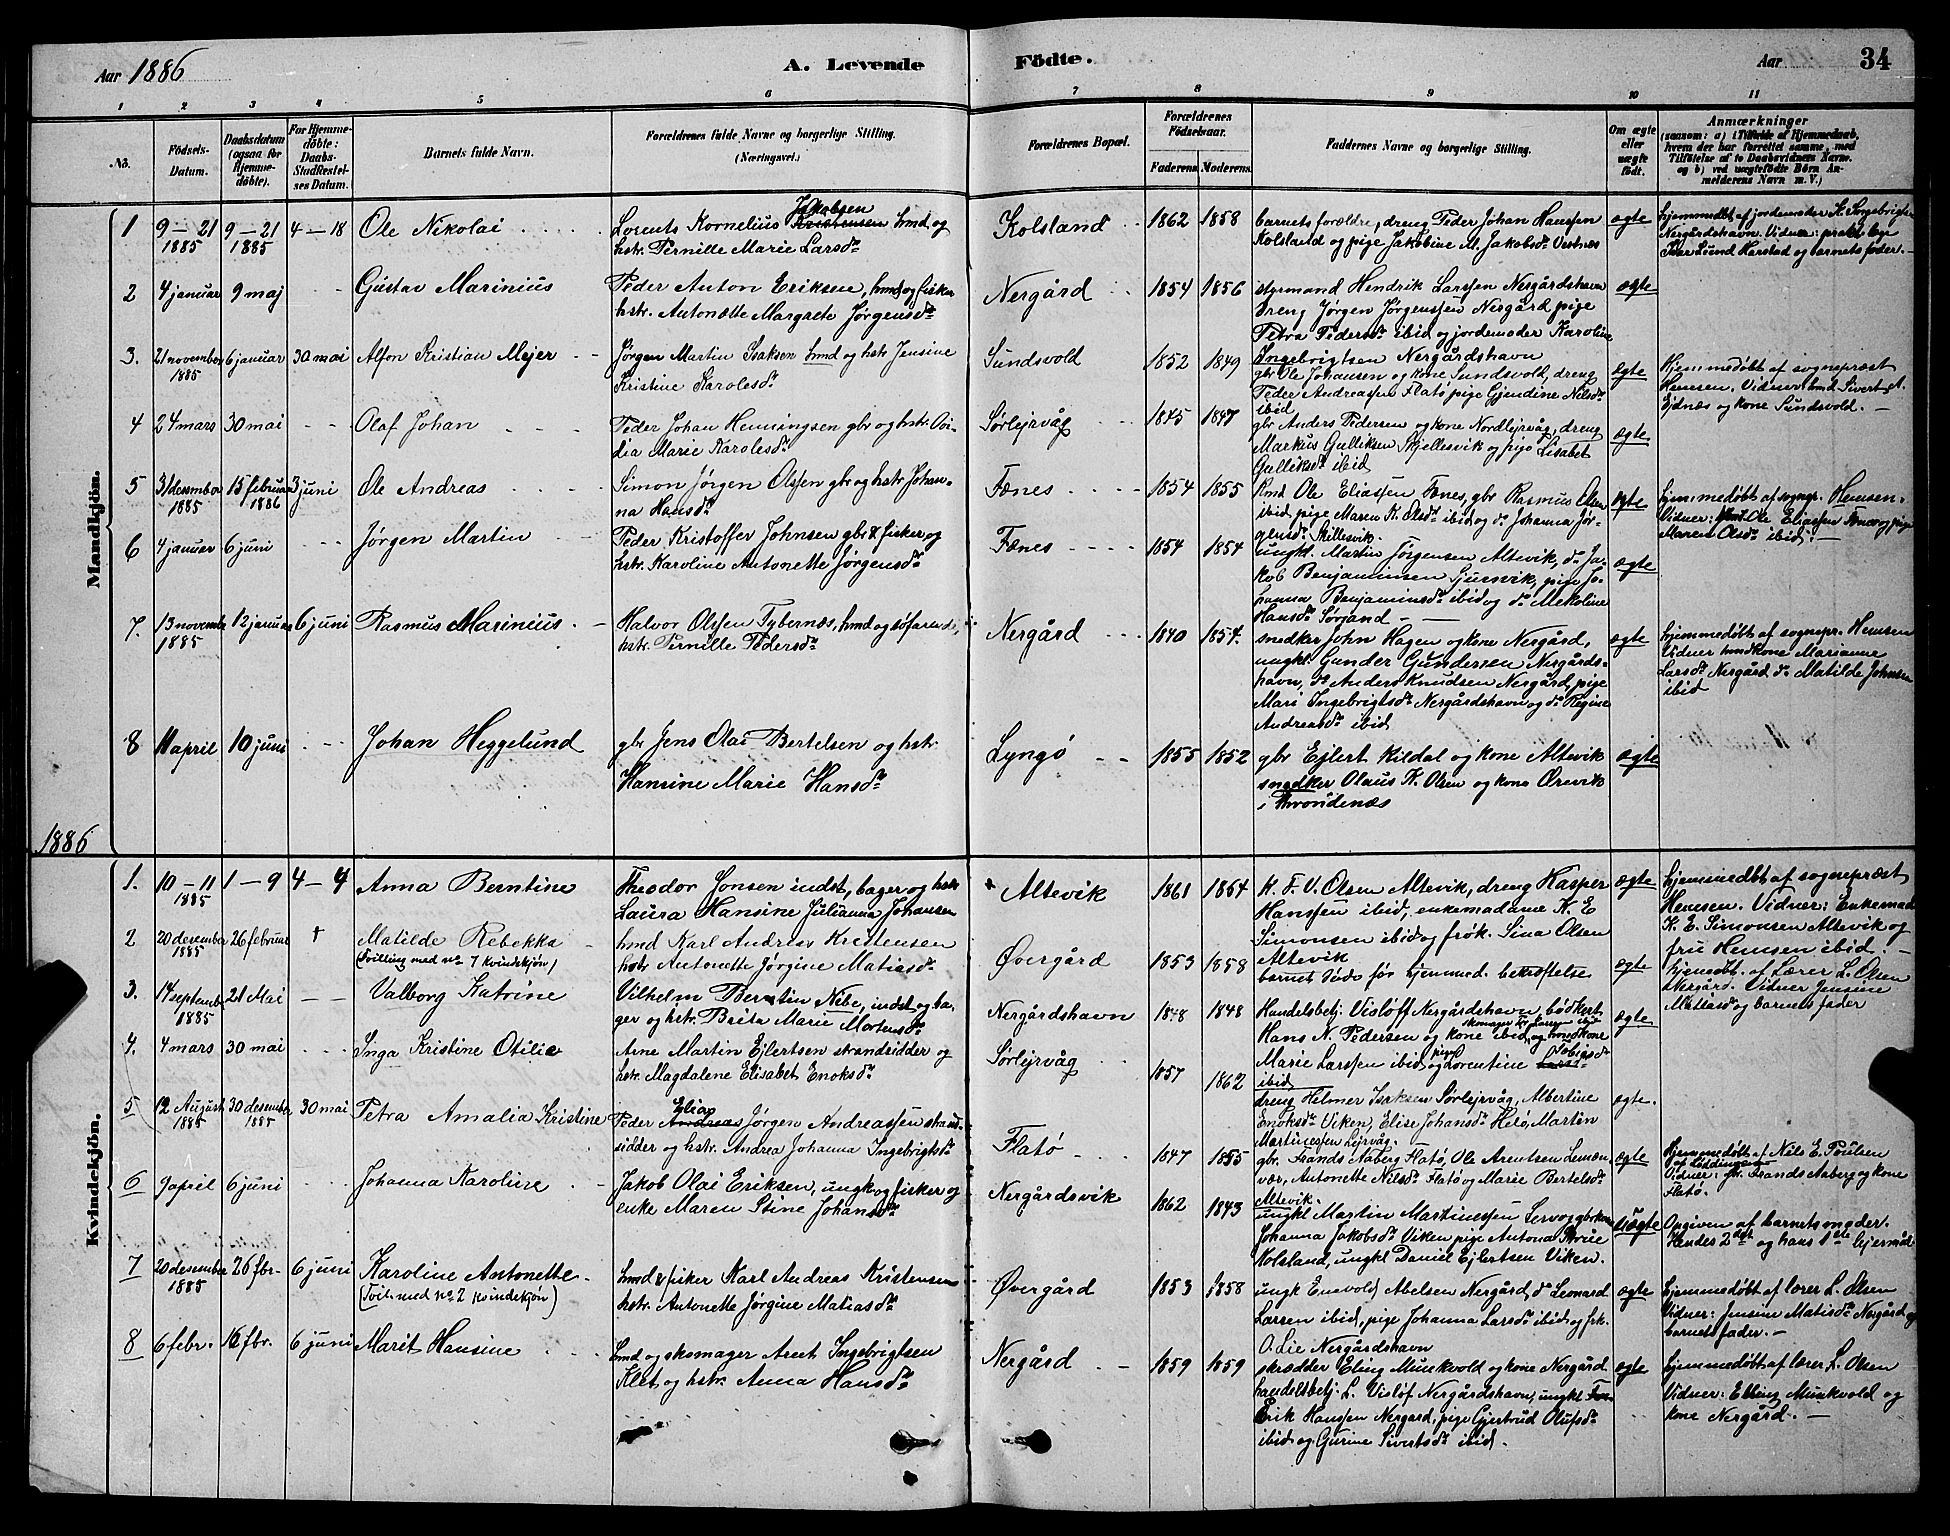 Aar 1886
A. Levende Födte.
Aar
34
1 2 3 4 5 6 7 8 9 10 11
No.
Födsels-Datum.
Daabsdatum (ogsaa for Hjemme-döbte).
For Hjemme-döbte: Daabs-Stadfæstel-ses Datum.
Barnets fulde Navn.
Forældrenes fulde Navne og borgerlige Stilling. (Næringsvei.)
Forældrenes Bopæl.
Forældrenes Födselsaar.
Faderens Moderens
Faddernes Navne og borgerlige Stilling.
Om ægte eller uægte födt.
Anmærkninger
(saasom: a) i Tilfælde af Hjemmedaab, hvem der har forrettet samme, med Tilföielse af to Daabsvidners Navne, og b) ved uægtefödte Börn Anmelderens Navn m. V.)
Mandkjön.
1 9–21 1885 9–21 1885 4–18 Ole Nikolai
Lorents Kornelius Jakobsen lmd og
hstr. Pernille Marie Larsdr
Kolsland 1862 1858
barnets forældre, dreng Peder Johan Hanssen
Kolsland og pige Jakobine M. Jakobsdr Vestnæs
ægte
hjemmedbt af jordemoder K. Ingebrigtsen
Nergårdshavn. Vidner: prakt. læge
Lund Harstad og barnets fader.
2 4 januar 9 maj Gustav Marinius
Peder Anton Eriksen, lmd og fisker
hstr. Antonætte Margrete Jørgensdr
Nergård 1854 1856
styrmand Hendrik Larssen Nergårdshavn
dreng Jørgen Jørgenssen Nergård, pige
Petra Pedersdr ibid og jordemoder Karoline
Ingebrigtsen Nergårdshavn
ægte
3. 21 november 1885 6 januar 30 mai Alfon Kristian Mejer
Jørgen Martin Isaksen lmd og hstr Jensine
Kristine Karolesdr
Sundsvold 1852 1849
gbr Ole Johansen og kone Sundsvold, dreng
Peder Andreassen Flatø, pige Gjendine Nilsdr
ibid
ægte
Hjemmedøbt af sognepræst
Hemsen. Vidner lmd Sivert
Ejdnæs og kone Sundsvold.
4 24 mars 30 mai Olaf Johan
Peder Johan Henningsen gbr og hstr Ovi-
dia Marie Karolesdr
Sørlejrvåg 1845 1847
gbr Anders Pedersen og kone Nordlejrvåg, dreng
Markus Gulliksen Skjellesvik og pige Lisabet
Gulliksdr ibid
ægte
5 31 desember 1885 15 februar 1886 3 juni Ole Andreas
Simon Jørgen Olssen gbr og hstr Johan-
na Hansdr
Fænes 1854 1855
lmd Ole Eliassen Fænes, gbr Rasmus Olsen
ibid, pige Maren K. Olsdr ibid og dr Johanna Jør-
gensdr Skillesvik.
ægte
hjemmedøbt af sognepr. Hemsen.
Vidner: Ole Eliassen Fænes og pige
Maren Olsdr ibid.
6 4 januar 6 juni Jørgen Martin
Peder Kristoffer Johnsen gbr & fisker og
hstr. Karoline Antonette Jørgensdr
Fænes 1854 1854
ungkl. Martin Jörgensen Altevik, dr Ja-
kob Benjaminsen Gjursvik, pige Jo-
hanna Benjaminsdr ibid og dr Mekoline
Hansdr Sørsand
ægte
7. 13 november 1885 12 januar 6 juni Rasmus Marinius
Halvor Olssen Fybernæs, lmd og søfarende,
hstr. Pernille Pedersdr
Nergård 1840 1854.
snedker John Hagen og kone Nergård,
ungkl Gunder Gundersen Nergårds-
havn, dr Anders Knudsen Nergård, pige
Mari Ingebrigtsdr Nergårdshavn og dr Regine
Andreasdr ibid
ægte
hjemmedøbt af sognepr. Hemsen
Vidner lmdkone Marianne
Larsdr Nergård dr Matilde Johnsen
ibid
8 11 april 10 juni Johan Heggelund
gbr Jens Olai Bertelsen og hstr.
Hansine Marie Hansdr
Lyngö 1855 1852
gbr Ejlert Kildal og kone Altevik
snedker Olaus K. Olsen og kone Ørevik
i Throndenæs
ægte
1886
Kvindekjön.
1. 10–11 1885 1–9 4–4 Anna Berntine
Theodor Jensen indst, bager og hstr
Laura Hansine Julianna Johansen
Altevik 1861 1854
K. F. V. Olsen Altevik, dreng Hasper
Hanssen ibid, enkemadame K. E
Simonsen ibid og frøk. Sina Olsen
Altevik
ægte
hjemmedbt af sognepræst
Hemsen. Vidner: Enkemad
K. E. Simonsen Altevik og
fru Hemsen ibid
2 20 desember 1885 26 februar † Matilde Rebekka
(tvilling med no 7 kvindekjøn)
lmd Karl Andreas Kristensen
hstr Antonette Jørgine Matiasdr
Øvergård 1853 1858
barnet døde før hjemmed. bekræftelse
ægte
hjemdbt. af Lærer L. Olsen
Nergård. Vidner Jensine
Matiasdr og barnets fader
3. 14 september 1885 21 Mai Valborg Katrine
Vilhelm Berntin Nibe, indst og ba-
ger og hstr. Brita Marie Mortensdr
Nergårdshavn 1848 1848
Handelsbetj. Visløff Nergårdshavn, bødkert
Hans N. Pedersen og kone ibid, og lmdkone
Marie Larssen ibid og pige Lorentine Tobiasdr
ibid
ægte
4. 4 mars 30 mai Inga Kristine Otilie
Arne Martin Ejlertsen strandsidder og
hstr. Magdalene Elisabet Enoksdr
Sørlejrvåg 1857 1862
dreng Helmer Isaksen Sørlejrvåg, Albertine
Enoksdr Viken, Elise Johansdr Helø, Martin
Martinessen Lejrvåg.
ægte.
5 12 August 1885 30 desember 1885 30 mai Petra Amalia Kristine
Peder Elias Jørgen Andreassen strand-
sidder og hstr. Andrea Johanna Ingebrigtsdr
Flatø 1847 1855
gbr. Frands Aaberg Flatø, Ole Arentsen Lemen-
vær, Antonette Nilsdr Flatø og Marie Bertelsdr
Altevik.
ægte
Hjemmedøbt af Nils E. Poulsen
Vidner: Frands Aaberg og kone
Flatø.
6 9 april 6 juni Johanna Karoline
Jakob Olai Eriksen, ungk og fisker og
enke Maren Stine Johansdr
Nergårdsvik 1862 1843
ungkl Martin Martinessen Lervåg, gbrkone
Johanna Jakobsdr Viken pige Antona True
Kolsland, ungkl Daniel Ejlertsen Viken.
uægte
Opgiven af barnets moder.
Hendes 2det og hans 1ste lejermål
7 20 desember 1885 26 fbr. 6 juni Karoline Antonette
(Tvil. med no 2 kvindekjøn)
lmd & fisker Karl Andreas Kristensen
hstr. Antonette Jørgine Matiasdr
Øvergård 1853 1858
ungk Enevold Abelsen Nergård, dr Leonard
Larsen ibid, pige Johanna Larsdr ibid og frk.
O. Lie Nergårdshavn
ægte
hjemmedøbt af lærer L. Olsen
Vidner: Jensine Matisdr Nergård og
barnets fader.
8 6 febr. 16 fbr. 6 juni Marit Hansine
lmd og skomager Arnt Ingebrigtsen
Klet og hstr. Anna Hansdr
Nergård 1859 1859
skrædder Eling Munkvold og kone Nergård
handelsbetj. L. Visløf Nergårdshavn, ungkl
Erik Hanssen Nergard, pige Gjertrud Olufsdr
ibid og Gurine Sivertsdr ibid.
ægte
hjemmedøbt af lærer L. Olsen
Vidner: Elling Munkvold og
kone Nergård.